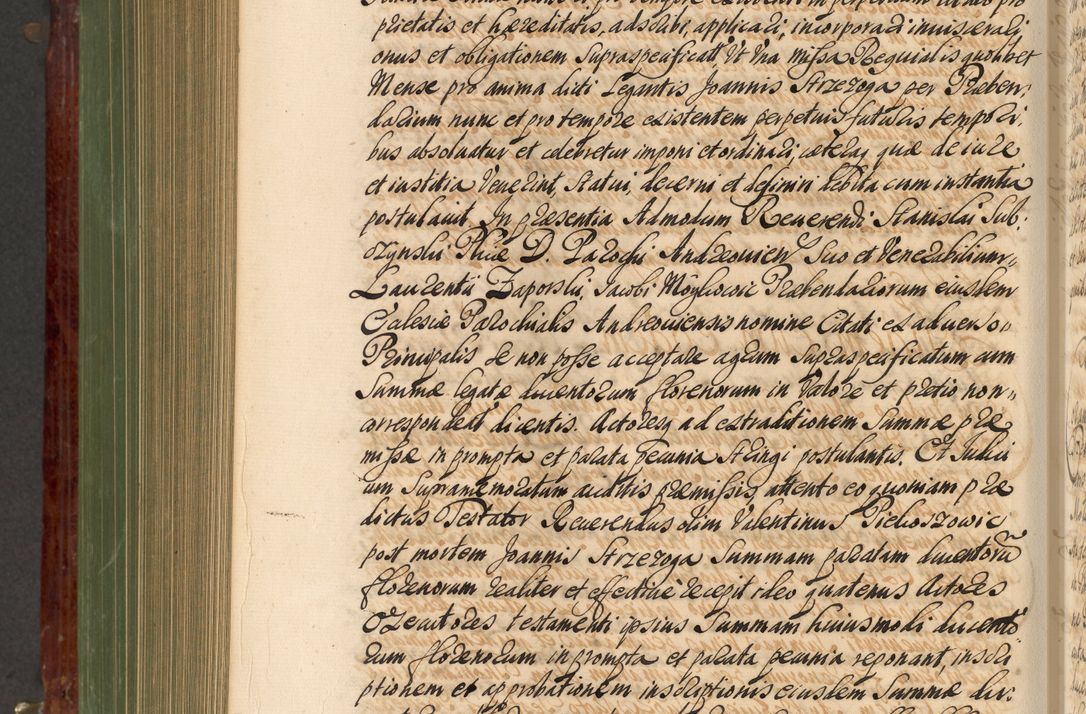 prietatis et hæreditatis, adscribi, applicari, incorporari inviscerari,
onus et obligationem supraspecificatt Vt Vna missa Requialis quolibet
Mense pro anima dicti Legantis Joannis Strzezoga per Præben:
darium nunc et pro tempore existentem perpetuis futuris tempori:
bus absoluatur et celebretur imponi et ordinari, cæteraq quæ de iure
et iustitia Venerint, Statui, decerni et definiri debita cum instantia
postulauit. In præsentia Admodum Reuerendi Stanislai Sub:
Phiæ D. Parochi Andreouien Suo et Venerabilium
Laurentii Zaporski, Jacobi Præbendariorum eiusdem
Ecclesiæ Parochialis Andreouiensis nomine Citati ex aduerso
Principalis se non posse acceptare agrum supraspecificatum cum
Summæ legatæ ducentorum florenorum in Valore et pretio non
correspondeat dicentis. Actoresq ad extraditionem Summæ præ
missæ in prompta et parata pecunia Stringi postulantis. Et Iudici
um Supramemoratum auditis præmissis, attento eo quoniam præ
dictus Testator Reuerendus olim Valentinus Piehoszowic
post mortem Joannis Strzezoga Summam paratam ducentorū
florenorum realiter et effectiue recepit ideo quatenus Actores
Executores testamenti ipsius Summam huiusmodi ducento
rum florenorum in prompta et parata pecunia reponant, inscri
ptionem et approbationem inscriptionis eiusdem Summæ du: